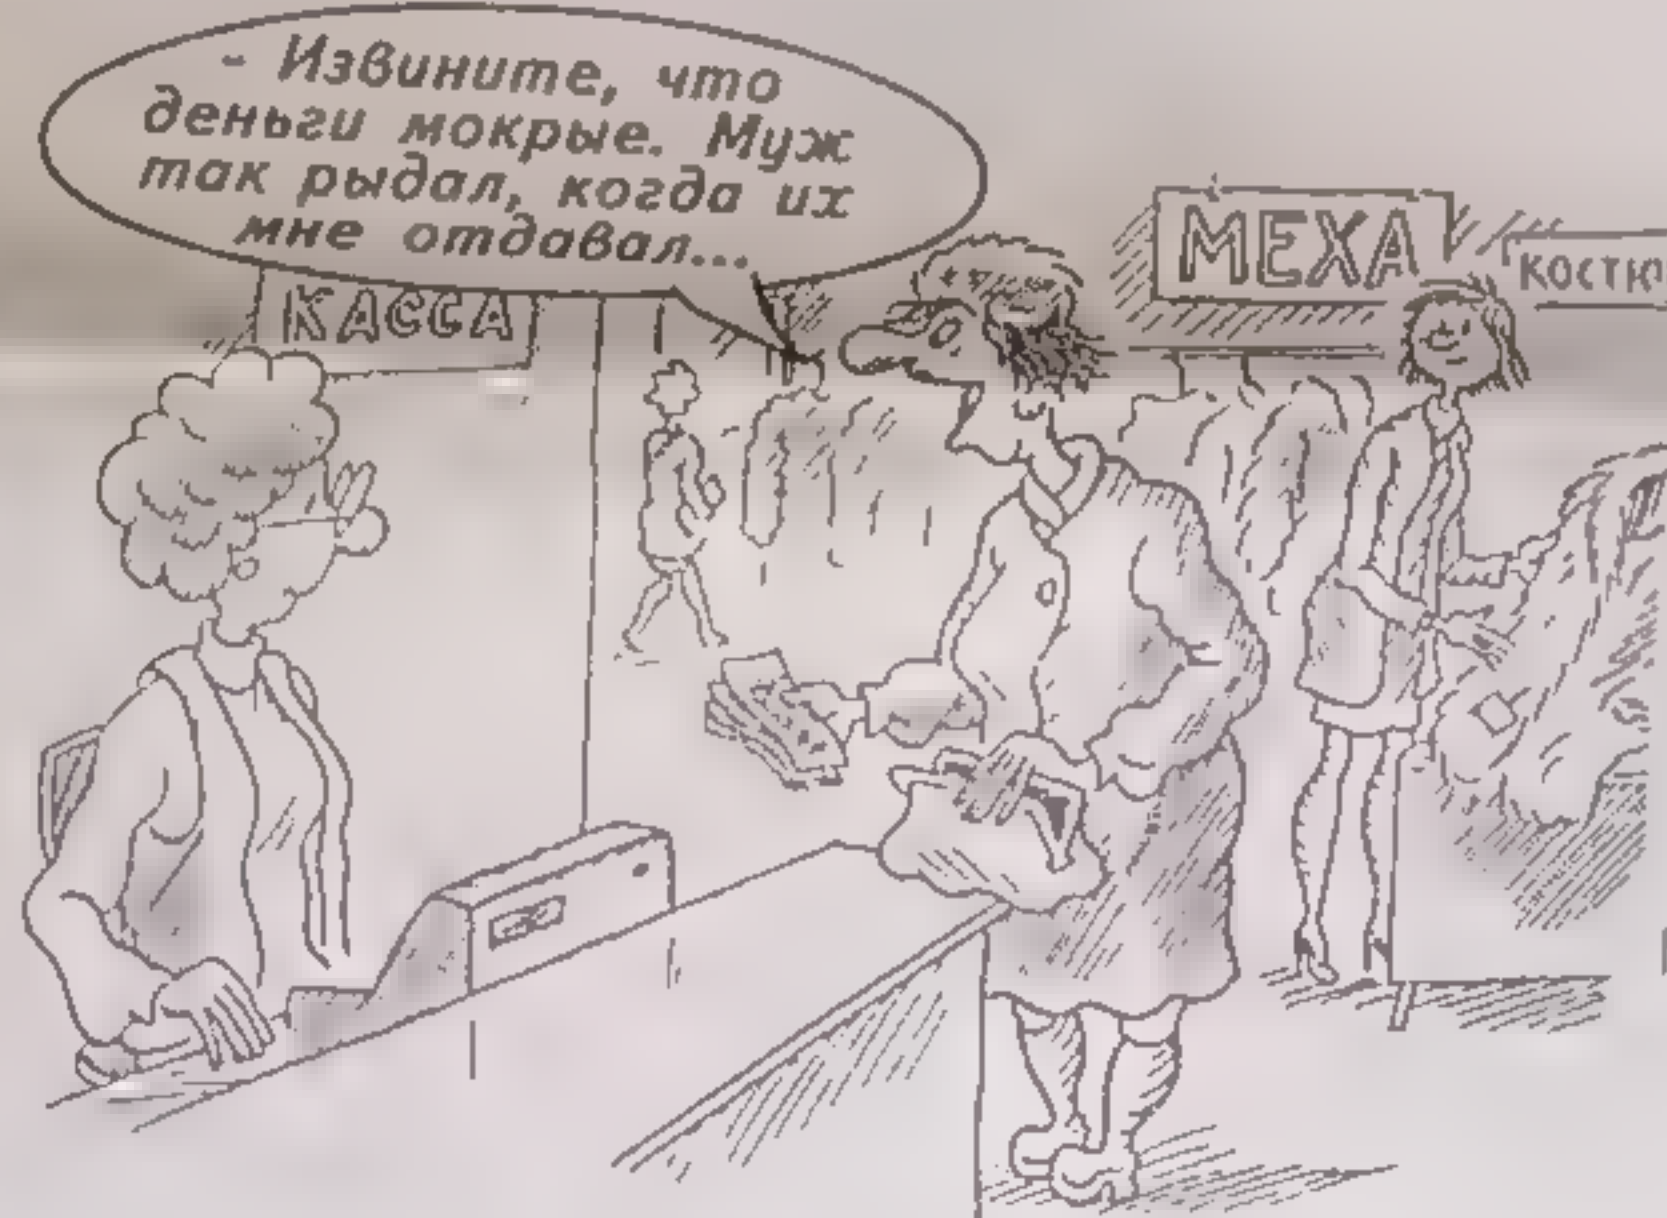 - Извините, что
деньги мокрые. Муж
так рыдал, когда их
мне отдавал...
КАССА
МЕХА
КОСТЮ